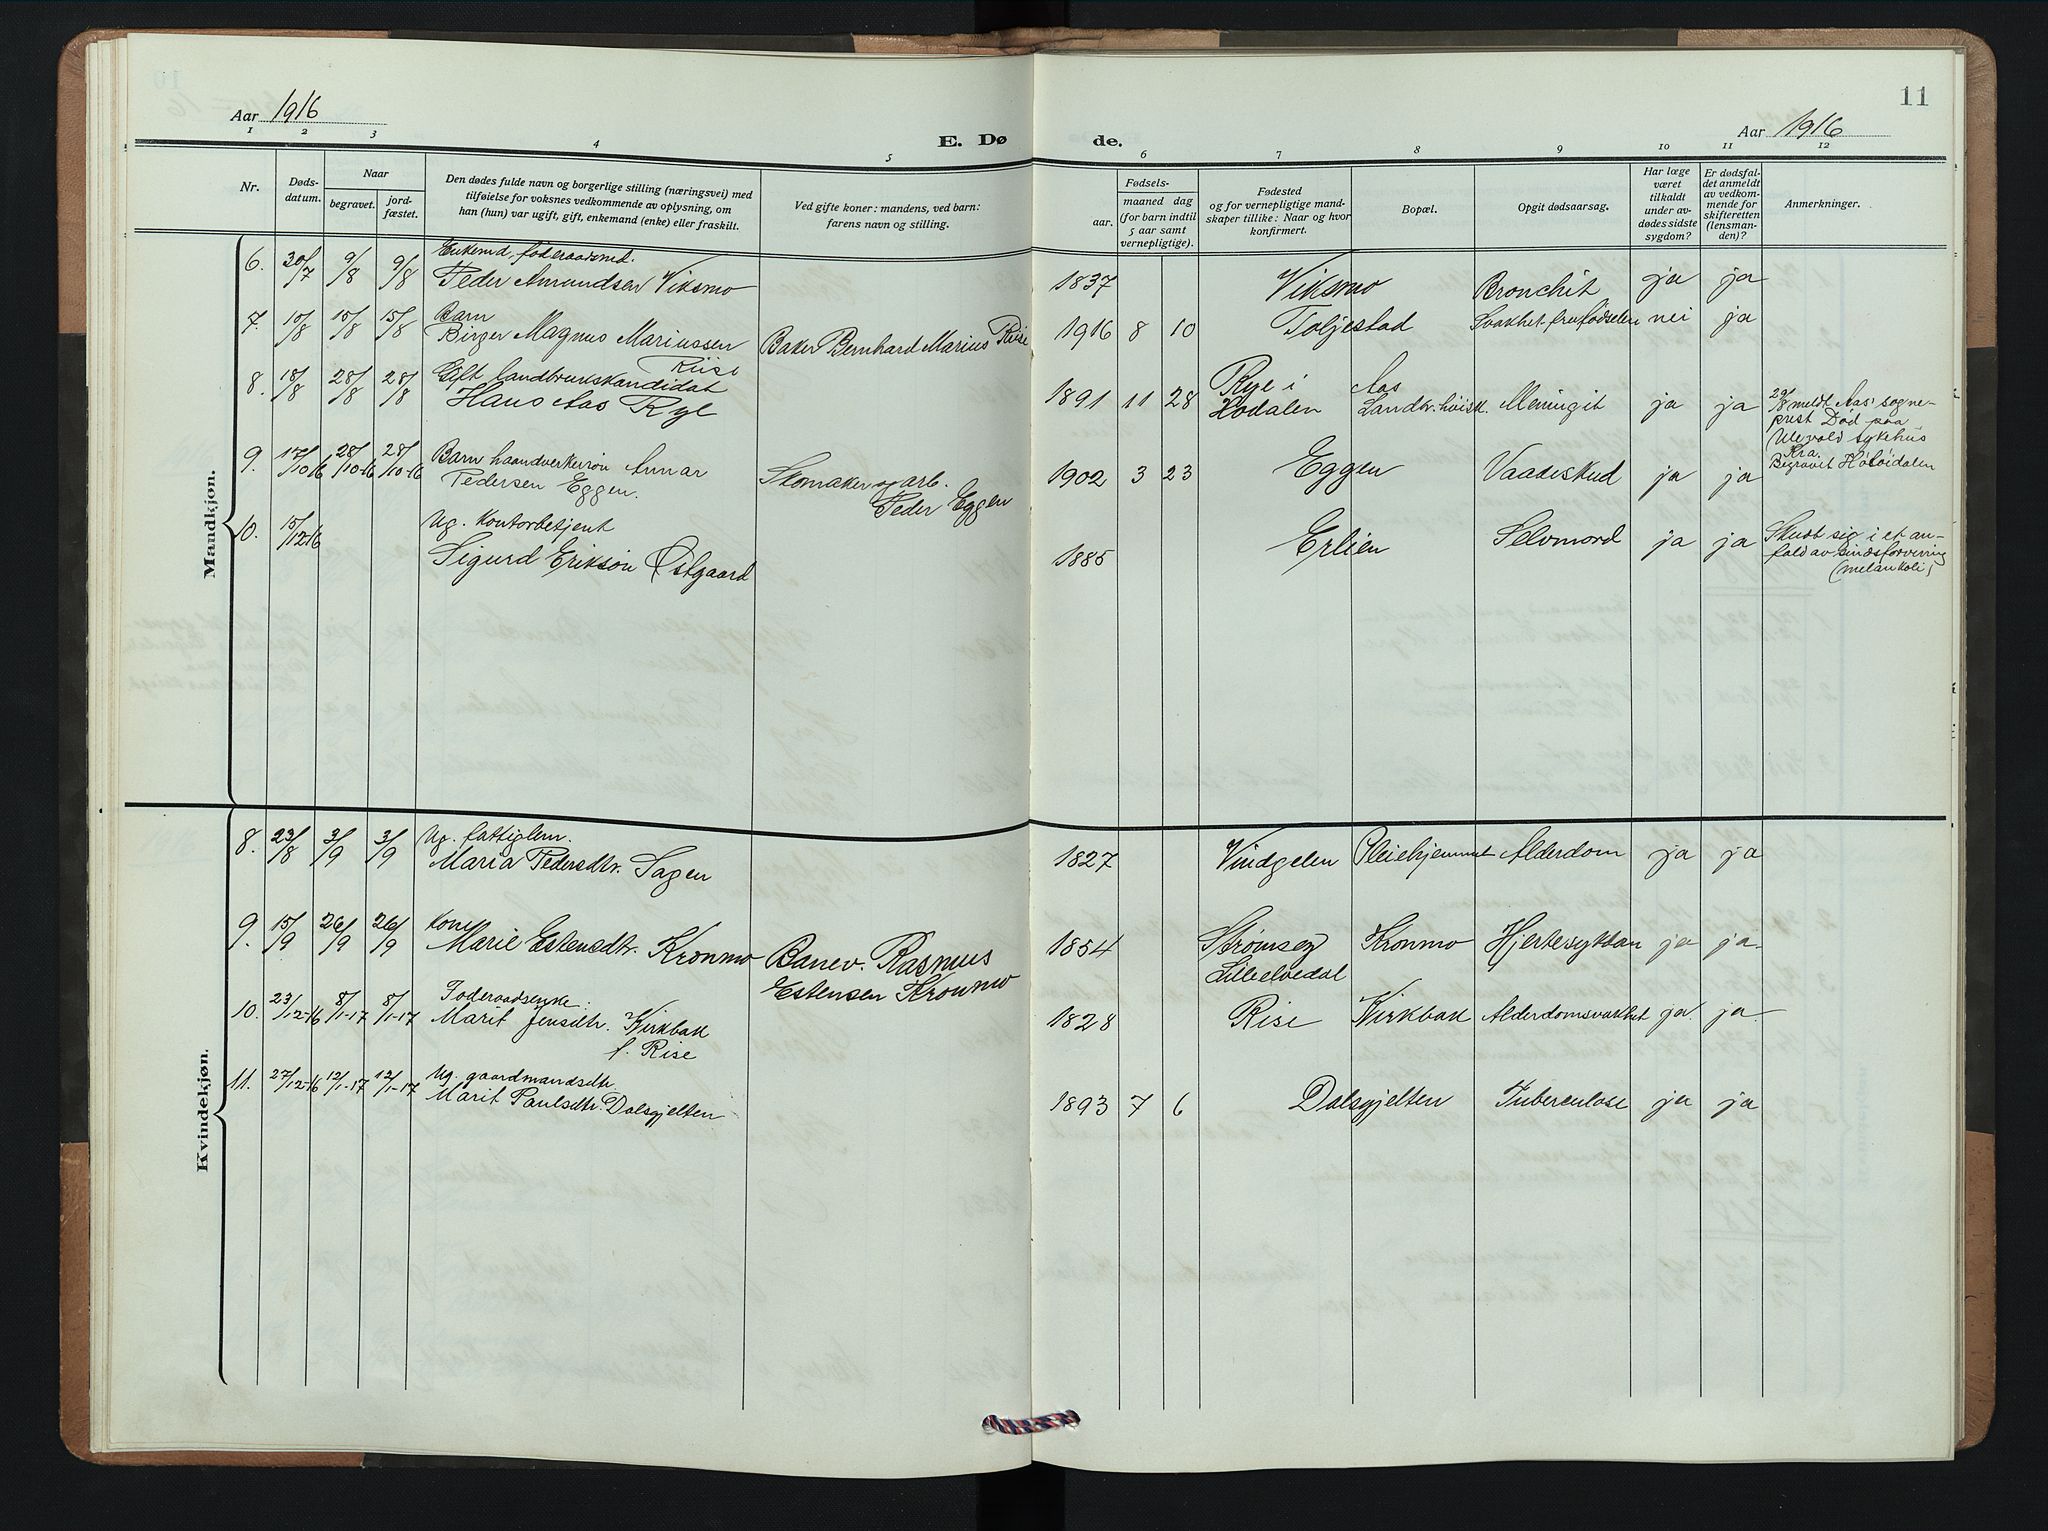 11
Aar 1916
E. Døde.
Aar 1916
1 2 3 4 5 6 7 8 9 10 11 12
Nr.
Døds-
datum.
Naar
begravet.
jord-
fæstet.
Den dødes fulde navn og borgerlige stilling (næringsvei) med
tilføielse for voksnes vedkommende av oplysning, om
han (hun) var ugift, gift, enkemand (enke) eller fraskilt.
Ved gifte koner: mandens, ved barn:
farens navn og stilling.
Fødsels-
aar.
maaned dag
(for barn indtil
5 aar samt
vernepligtige).
Fødested
og for vernepligtige mand-
skaper tillike: Naar og hvor
konfirmert.
Bopæl.
Opgit dødsaarsag.
Har læge
været
tilkaldt
under av-
dødes sidste
sygdom?
Er dødsfal-
det anmeldt
av vedkom-
mende for
skifteretten
(lensman-
den)?
Anmerkninger.
Mandkjøn.
6. 30/7 9/8 9/8 Enkemd, føderaadsmd.
Peder Amundsen Viksmo 1837 Viksmo Bronchit ja ja
7. 10/8 15/8 15/8 Barn
Birger Magnus Mariussen
Riise
Baker Bernhard Marius Riise 1916 8 10 Toljestad Svakhet fra fødselen nei ja
8. 18/8 28/8 28/8 Gift landbrukskandidat
Hans Aas Rye 1891 11 28 Rye i
Hodalen
Aas
Landbr. høisk. Meningit ja ja
29/8 meldt Aas' sogne-
prest Død paa
Ulevold sykehus
Kra.
Begravet Holøidalen
9. 17/10-16 28/10-16 28/10-16 Barn haandverkersøn Annar
Pedersen Eggen.
Skomaker og arb.
Peder Eggen 1902 3 23 Eggen Vaadeskud ja ja
10. 15/12-16 Ug. kontorbetjent
Sigurd Eriksøn Østgaard 1885 Erlien Selvmord ja ja
Skudt sig i et an-
fald av sindsforvirring
(melankoli)
Kvindekjøn.
8. 23/8 3/9 3/9 Ug. fattiglem.
Maria Pedersdtr. Sagen 1827 Vindgelen Pleiehjemmet Alderdom ja ja
9. 15/9 26/9 26/9 Kone
Marie Estensdtr. Kronmo Banev. Rasmus
Estensen Kronmo 1854 Strømseg
Lilleelvedal
Kronmo Hjertesykdom ja ja
10. 23/12-16 8/1-17 8/1-17 Føderaadsenke:
Marit Jensdtr. Kirkbak
f. Rise 1828 Rise Kirkbak Alderdomsvakhet ja ja
11. 27/12-16 12/1-17 12/1-17 Ug. gaardmandsdtr.
Marit Paulsdtr. Dalsgjelten 1893 7 6 Dalsgjelten Tuberculose ja ja